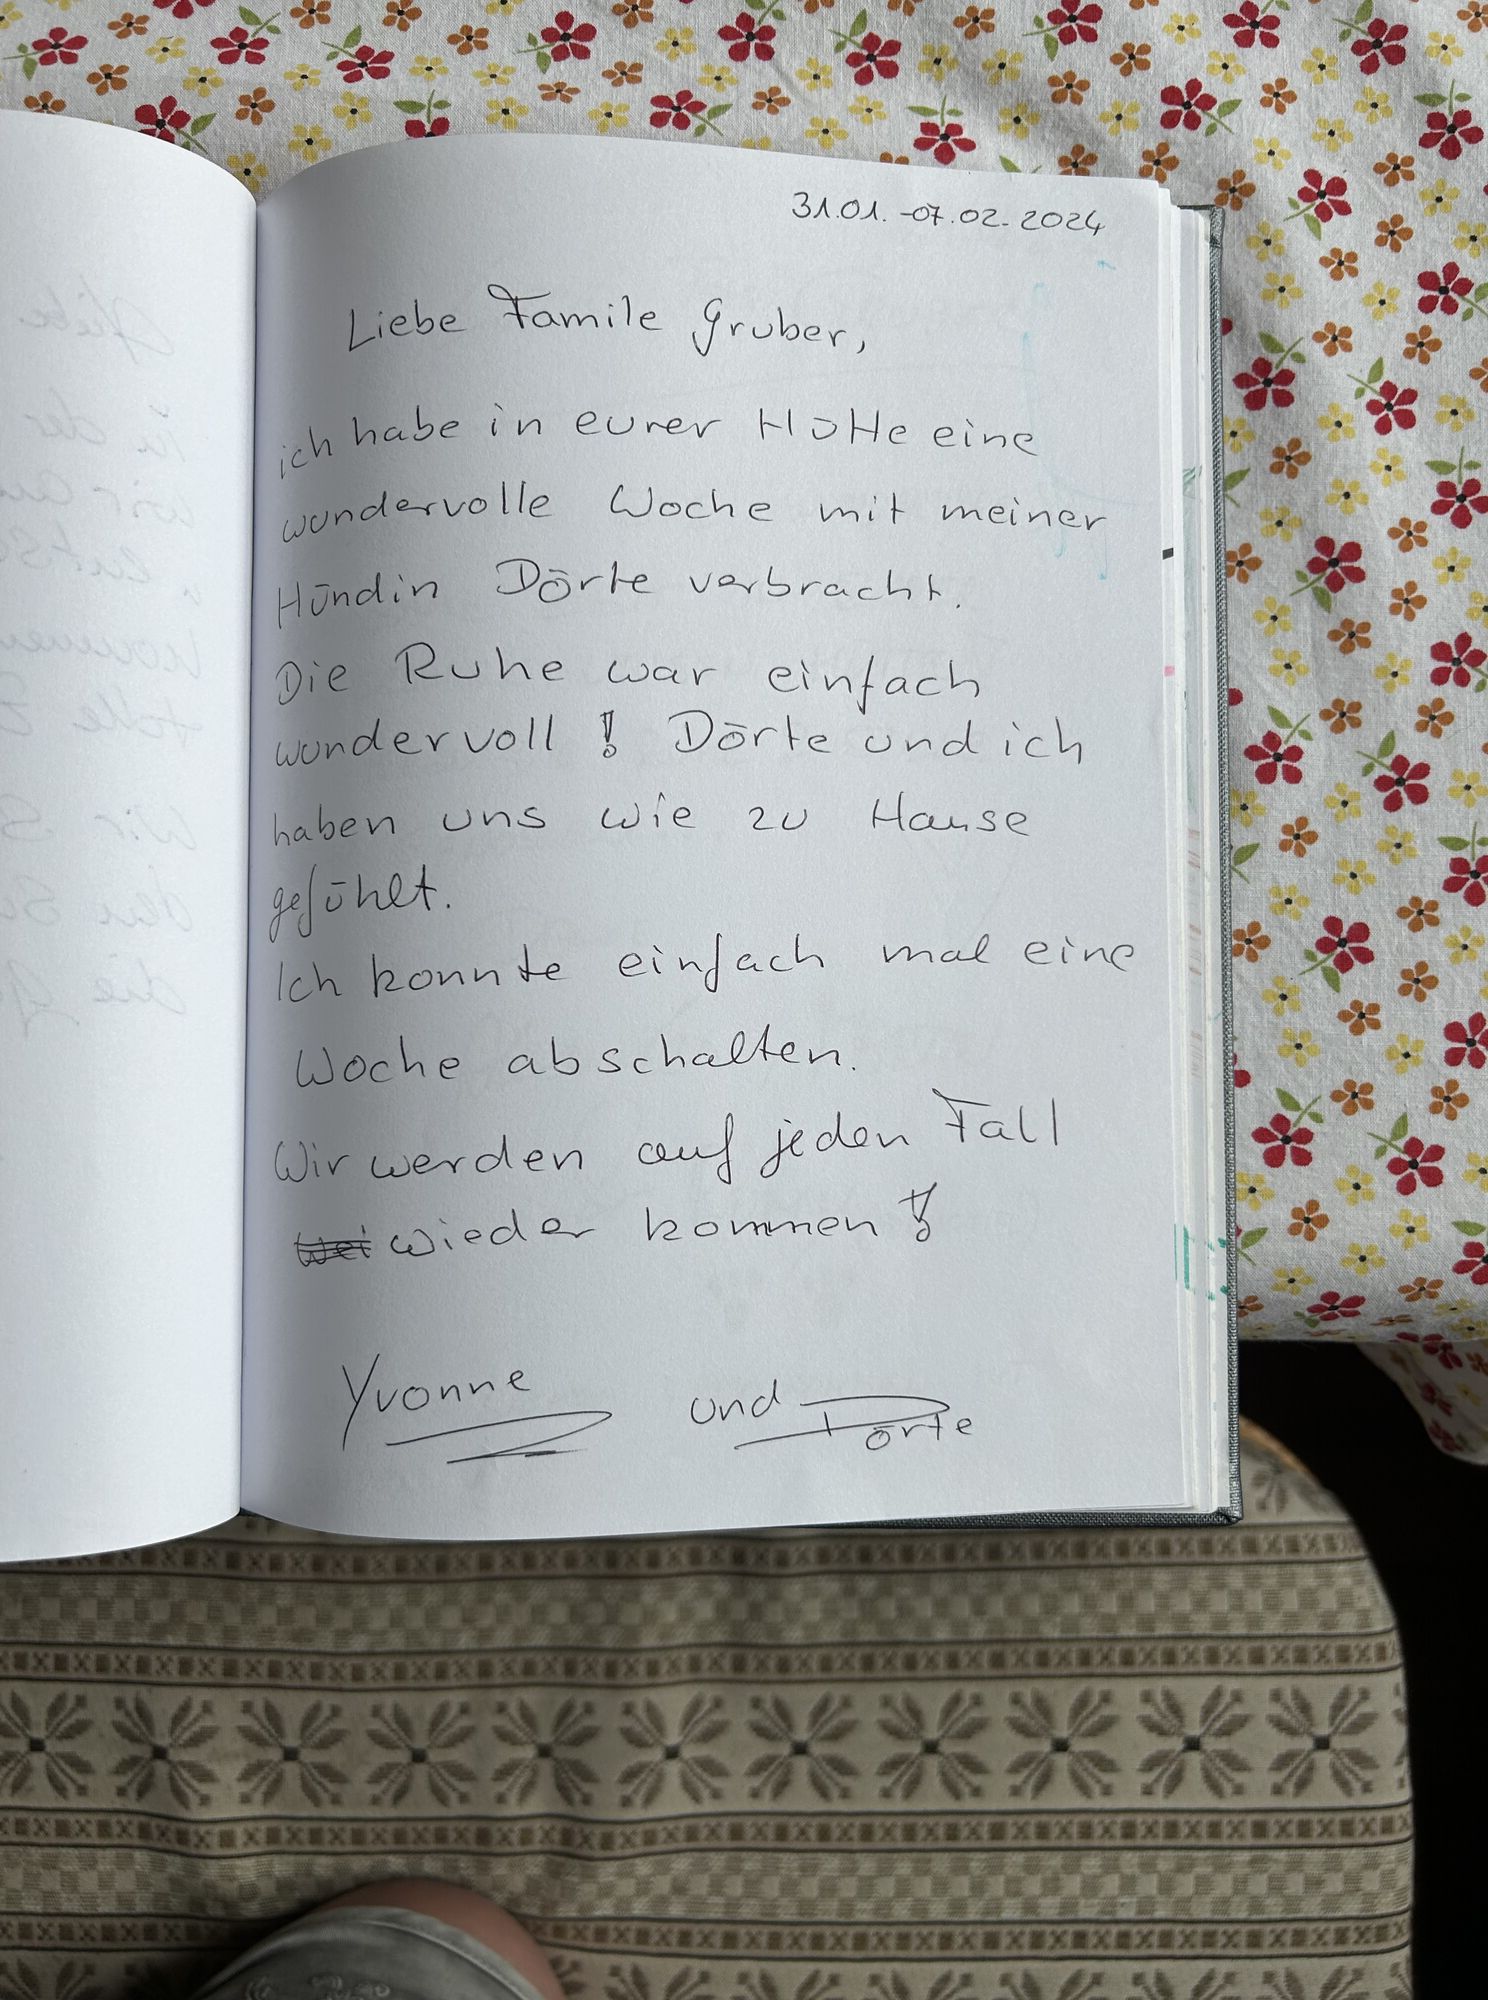 31.01.-07.02.2024
Liebe Famile Gruber,
ich habe in eurer Hütte eine
wundervolle Woche mit meiner
Hündin Dörte verbracht.
Die Ruhe war einfach
wundervoll! Dörte und ich
haben uns wie zu Hause
gefühlt.
Ich konnte einfach mal eine
Woche abschalten.
Wir werden auf jeden Fall
wieder kommen!
Yvonne und Dörte